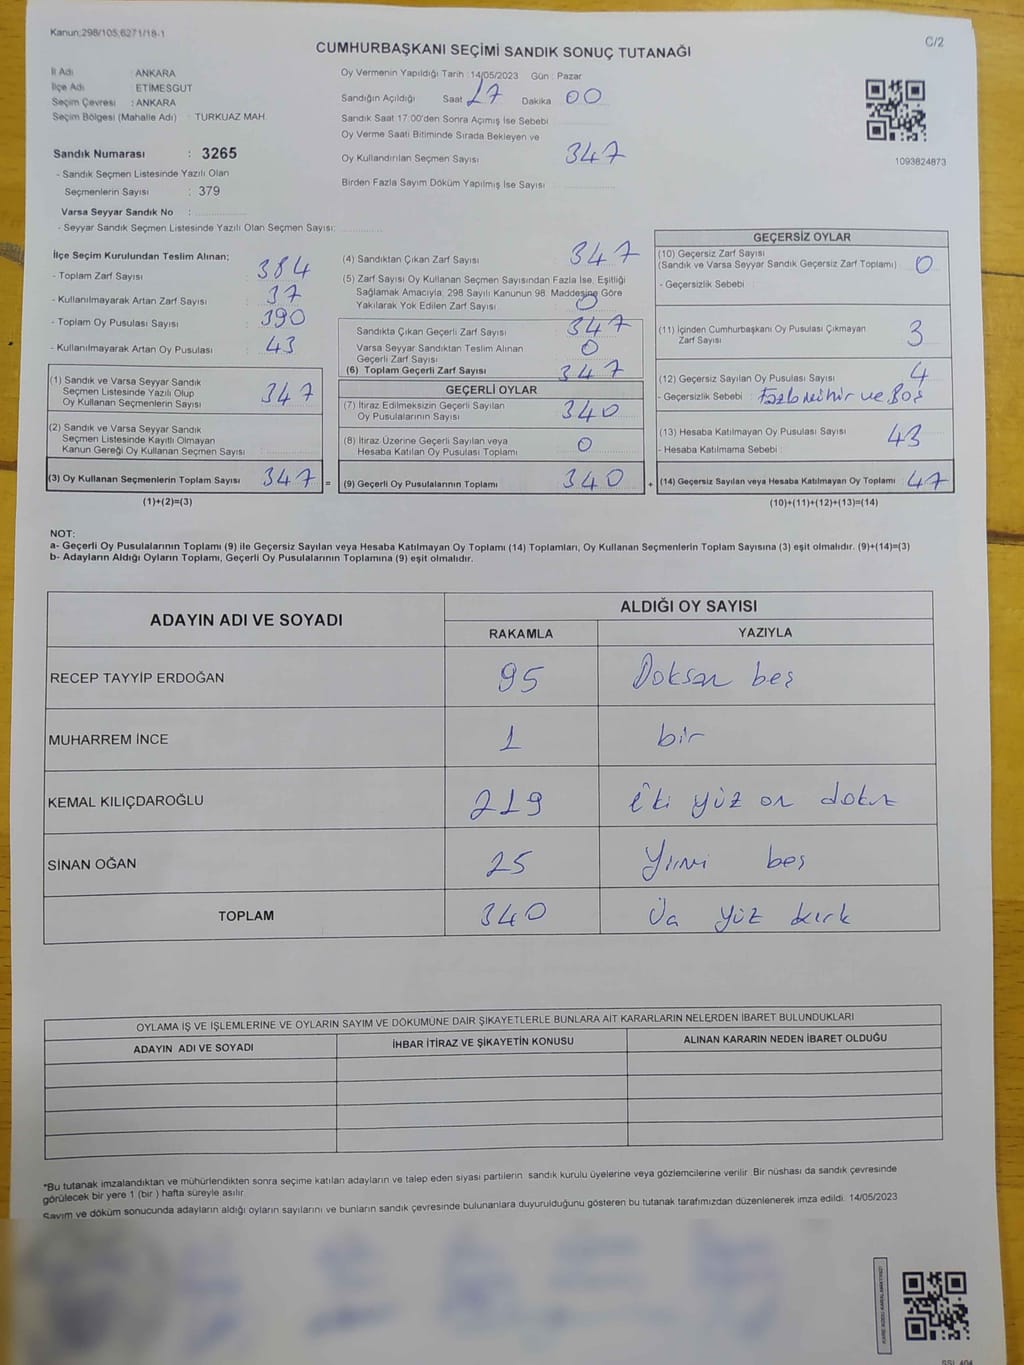 Kanun;298/105,6271/18-1
C/2
CUMHURBAŞKANI SEÇİMİ SANDIK SONUÇ TUTANAĞI
İl Adı : ANKARA
İlçe Adı : ETİMESGUT
Seçim Çevresi : ANKARA
Seçim Bölgesi (Mahalle Adı) : TURKUAZ MAH.
Sandık Numarası : 3265
- Sandık Seçmen Listesinde Yazılı Olan
Seçmenlerin Sayısı : 379
Varsa Seyyar Sandık No :
- Seyyar Sandık Seçmen Listesinde Yazılı Olan Seçmen Sayısı:
Oy Vermenin Yapıldığı Tarih : 14/05/2023 Gün : Pazar
Sandığın Açıldığı Saat 17 Dakika 00
Sandık Saat 17:00'den Sonra Açımış İse Sebebi
Oy Verme Saati Bitiminde Sırada Bekleyen ve
Oy Kullandırılan Seçmen Sayısı 347
Birden Fazla Sayım Döküm Yapılmış İse Sayısı
1093824873
İlçe Seçim Kurulundan Teslim Alınan;
- Toplam Zarf Sayısı : 384
- Kullanılmayarak Artan Zarf Sayısı : 37
- Toplam Oy Pusulası Sayısı : 390
- Kullanılmayarak Artan Oy Pusulası : 43
(1) Sandık ve Varsa Seyyar Sandık
Seçmen Listesinde Yazılı Olup
Oy Kullanan Seçmenlerin Sayısı 347
(2) Sandık ve Varsa Seyyar Sandık
Seçmen Listesinde Kayıtlı Olmayan
Kanun Gereği Oy Kullanan Seçmen Sayısı
(3) Oy Kullanan Seçmenlerin Toplam Sayısı 347 =
(1)+(2)=(3)
(4) Sandıktan Çıkan Zarf Sayısı 347
(5) Zarf Sayısı Oy Kullanan Seçmen Sayısından Fazla İse, Eşitliği
Sağlamak Amacıyla; 298 Sayılı Kanunun 98. Maddesine Göre
Yakılarak Yok Edilen Zarf Sayısı 0
Sandıkta Çıkan Geçerli Zarf Sayısı 347
Varsa Seyyar Sandıktan Teslim Alınan
Geçerli Zarf Sayısı 0
(6) Toplam Geçerli Zarf Sayısı 347
GEÇERLİ OYLAR
(7) İtiraz Edilmeksizin Geçerli Sayılan
Oy Pusulalarının Sayısı 340
(8) İtiraz Üzerine Geçerli Sayılan veya
Hesaba Katılan Oy Pusulası Toplamı 0
(9) Geçerli Oy Pusulalarının Toplamı 340 +
GEÇERSİZ OYLAR
(10) Geçersiz Zarf Sayısı
(Sandık ve Varsa Seyyar Sandık Geçersiz Zarf Toplamı) 0
- Geçersizlik Sebebi :
(11) İçinden Cumhurbaşkanı Oy Pusulası Çıkmayan
Zarf Sayısı 3
(12) Geçersiz Sayılan Oy Pusulası Sayısı 4
- Geçersizlik Sebebi : Fazla mühür ve Boş
(13) Hesaba Katılmayan Oy Pusulası Sayısı 43
- Hesaba Katılmama Sebebi :
(14) Geçersiz Sayılan veya Hesaba Katılmayan Oy Toplamı 47
(10)+(11)+(12)+(13)=(14)
NOT:
a- Geçerli Oy Pusulalarının Toplamı (9) ile Geçersiz Sayılan veya Hesaba Katılmayan Oy Toplamı (14) Toplamları, Oy Kullanan Seçmenlerin Toplam Sayısına (3) eşit olmalıdır. (9)+(14)=(3)
b- Adayların Aldığı Oyların Toplamı, Geçerli Oy Pusulalarının Toplamına (9) eşit olmalıdır.
ADAYIN ADI VE SOYADI
ALDIĞI OY SAYISI
RAKAMLA YAZIYLA
RECEP TAYYİP ERDOĞAN 95 Doksan beş
MUHARREM İNCE 1 bir
KEMAL KILIÇDAROĞLU 219 iki yüz on dokuz
SİNAN OĞAN 25 Yirmi beş
TOPLAM 340 Üç yüz kırk
OYLAMA İŞ VE İŞLEMLERİNE VE OYLARIN SAYIM VE DÖKÜMÜNE DAİR ŞİKAYETLERLE BUNLARA AİT KARARLARIN NELERDEN İBARET BULUNDUKLARI
ADAYIN ADI VE SOYADI İHBAR İTİRAZ VE ŞİKAYETİN KONUSU ALINAN KARARIN NEDEN İBARET OLDUĞU
*Bu tutanak imzalandıktan ve mühürlendikten sonra seçime katılan adayların ve talep eden siyasi partilerin sandık kurulu üyelerine veya gözlemcilerine verilir. Bir nüshası da sandık çevresinde
görülecek bir yere 1 (bir ) hafta süreyle asılır.
Sayım ve döküm sonucunda adayların aldığı oyların sayılarını ve bunların sandık çevresinde bulunanlara duyurulduğunu gösteren bu tutanak tarafımızdan düzenlenerek imza edildi. 14/05/2023